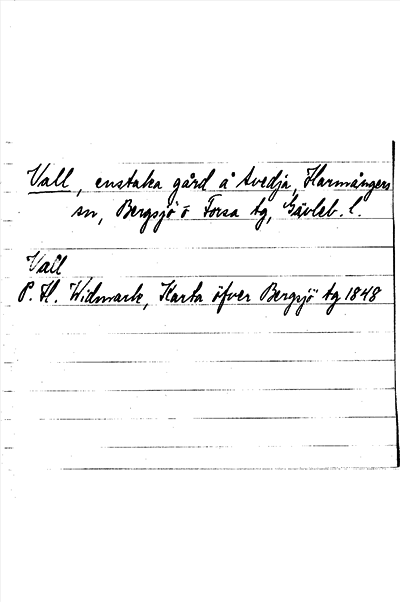 Vall, enstaka gård å Svedja, Harmångers
sn, Bergsjö o Forsa tg, Gävleb. l.
Vall
P. H. Widmark, Karta öfver Bergsjö tg 1848